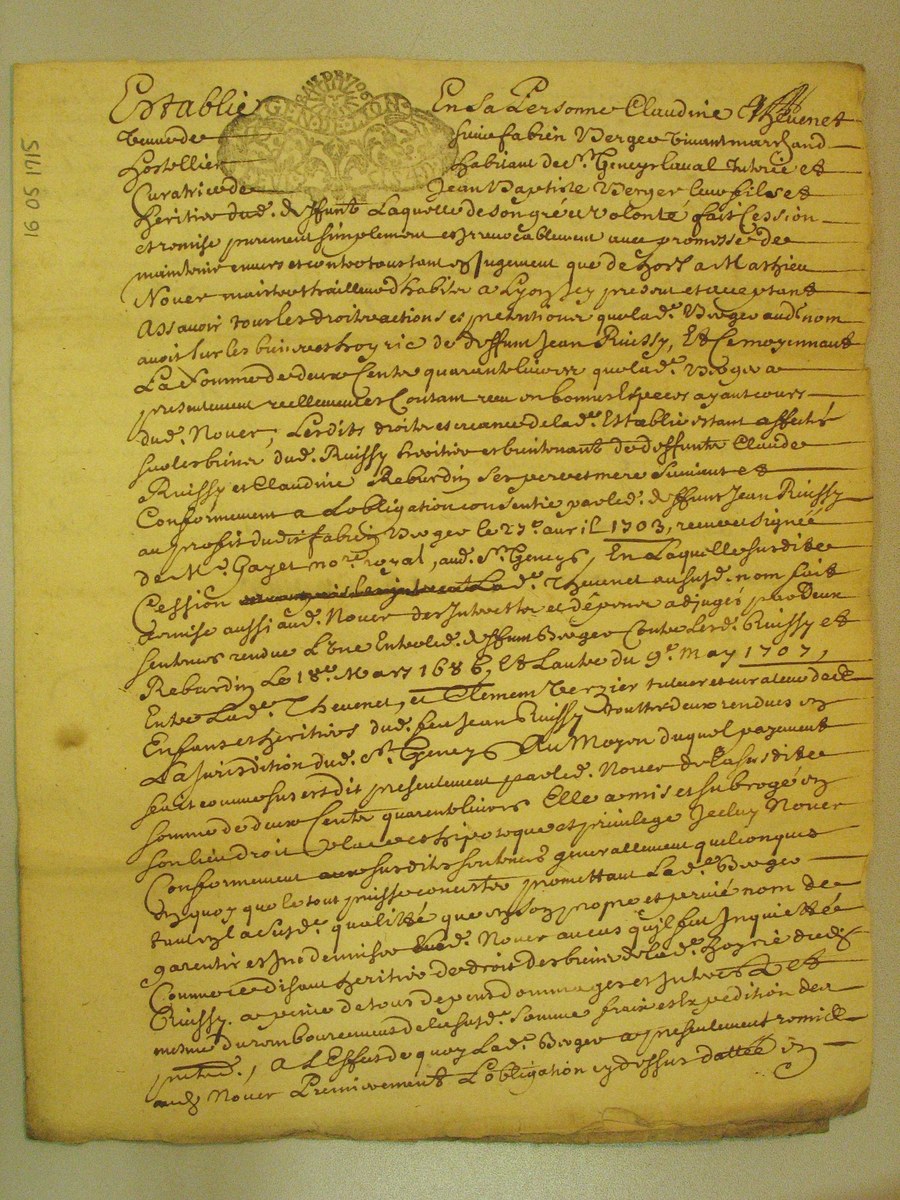 16 05 1715
GNALDE1706
Establie En Sa Personne Claudine Thevenet
veuve de feu fabien Berger vivant marchand
hostellier habitant de St. Geneys laval tutrice et
Curatrice de Jean Baptiste Berger leur fils et
heritier dud. deffunt Laquelle de son gré et volonté fait Cession
et remise purement simplement et irrevocablement avec promesse de
maintenir envers et contre tous tant en Jugement que dehors a Mathieu
Nover maistre tailleur d'habits a Lyon icy present et acceptant
Assavoir tous les droits actions et pretentions que lad. Berger aud. nom
avoit sur les biens et hoyrie de deffunt Jean Ruissy, Et Ce moyennant
La Somme de deux Cents quarente livres que lad. Berger a
presentement reellement et Contant receu en bonnes especes ayant cours
dud. Nover, Lesdits droits et creance de lad. Establie estant affectés
sur les biens dud. Ruissy heritier et bientenant de deffunts Claude
Ruissy et Claudine Reburdin ses pere et mere suivant et
Conformement a Lobligation consentie par led. deffunt Jean Ruissy
au proffit dudit fabien Berger le 27e. auril 1703, receue et signée
de Me. Gayet nore. royal, aud. St. Geneys, En Laquelle susdite
Cession Lad. Thevenet au susd. nom fait
remise aussi aud. Nover des Interests et dépens adjugés par Deux
sentences rendues L'Une Entre led. deffunt Berger Contre lesd. Ruissy et
Reburdin Le 18e. Mars 1686, Et Lautre du 9e. may 1707,
Entre Lad. Thevenet, et Clement Verzier tuteur et curateur des
Enfans et heritiers dud. feu Jean Ruissy touttes deux rendues en
La Jurisdition dud. St. Geneys Au Moyen duquel payement
fait comme sus est dit presentement par led. Nover de la susdite
somme de deux Cents quarente livres Elle a mis et subrogé en
son lieu droit place et hipoteque et privilege Jceluy Nover
Conformement aux susdits sentences generallement quelconques
En quoy que le tout puisse concister promettant Lad. Berger
tant en la susd. qualitté que en son propre et privé nom de
garentir et indemniser led. Nover au cas qu'il fut Inquietté
Comme se disant heritier de droit des biens de lad. hoyrie dudit
Ruissy. a peine de tous depens dommages et Interests et
mesme du remboursement de la susd. somme frais et Expedition des
pntes., A L'Effet de quoy Lad. Berger a presentement remis
aud. Nover Premierement L'obligation cy dessus dattée en